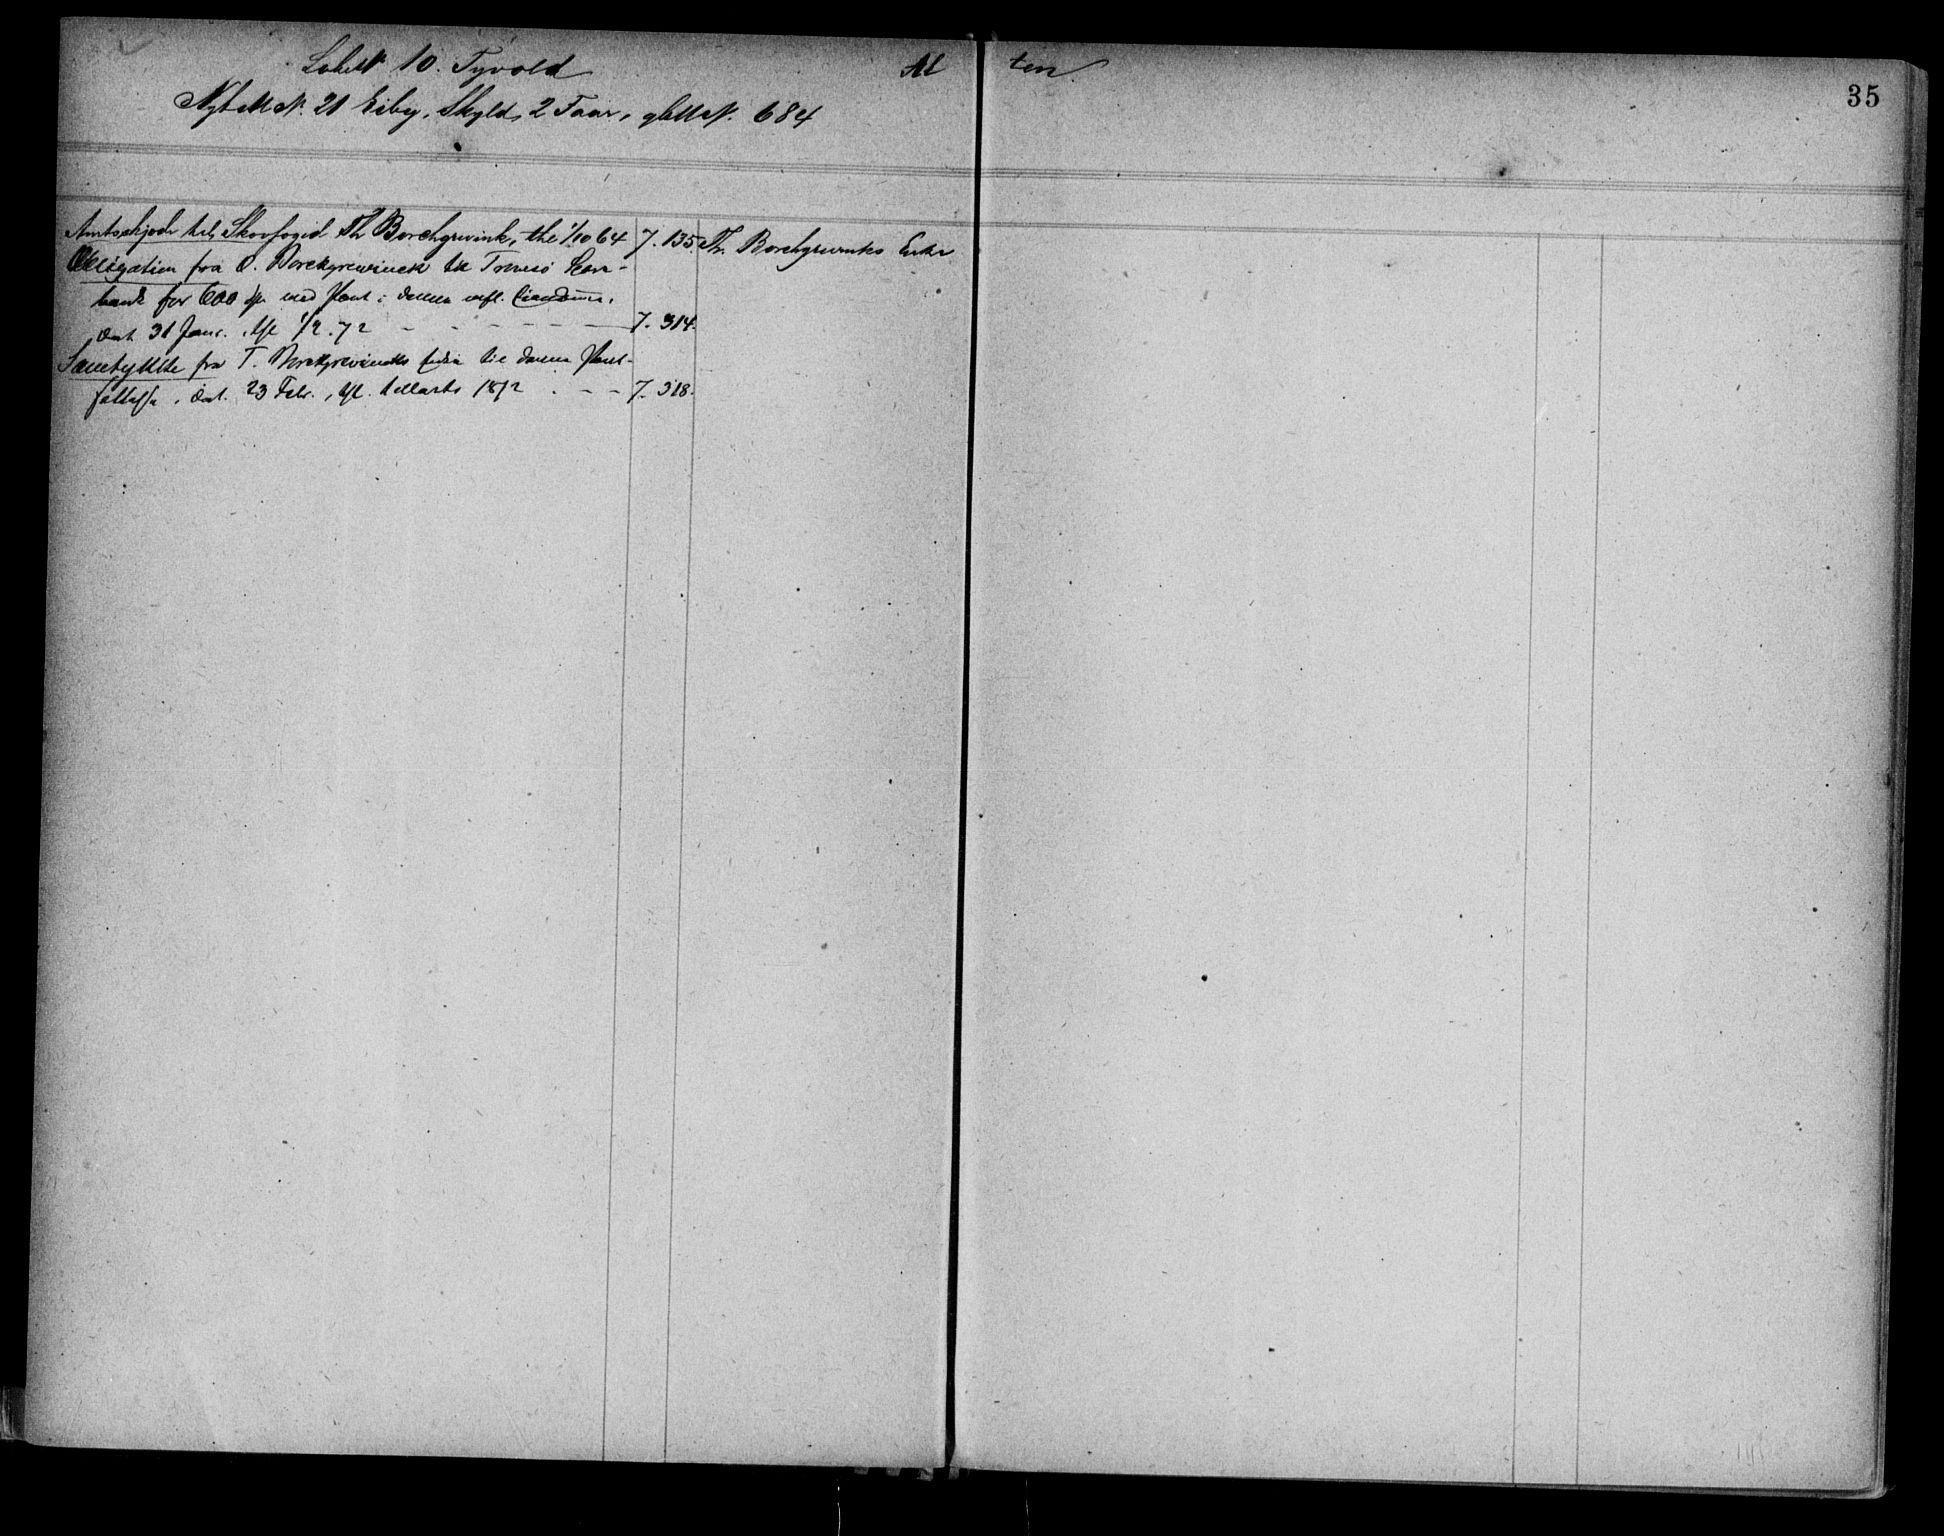 LøbeN 10. Tyvold
Al ten
35
NytMN. 21 Eiby, Skyld, 2 Faar, glMN. 684
Amtsskjøde til Skovfogid Th Borchgrevink, thl 1/10 64 7. 135 Th. Borchgrevinks Enke
Obligation fra O. Borchgrewinck til Tromsø Spare-
bank for 600 Spd med Pant i denne mfl. Eiendomme,
dat 31 Janr. thl 1/2. 72 - - - - - 7. 314.
Samtykke fra T. Borchgrevincks Enke til denne Pant-
sættelse, dat. 23 Febr., thl. 1 Marts 1872 - - - 7. 318.